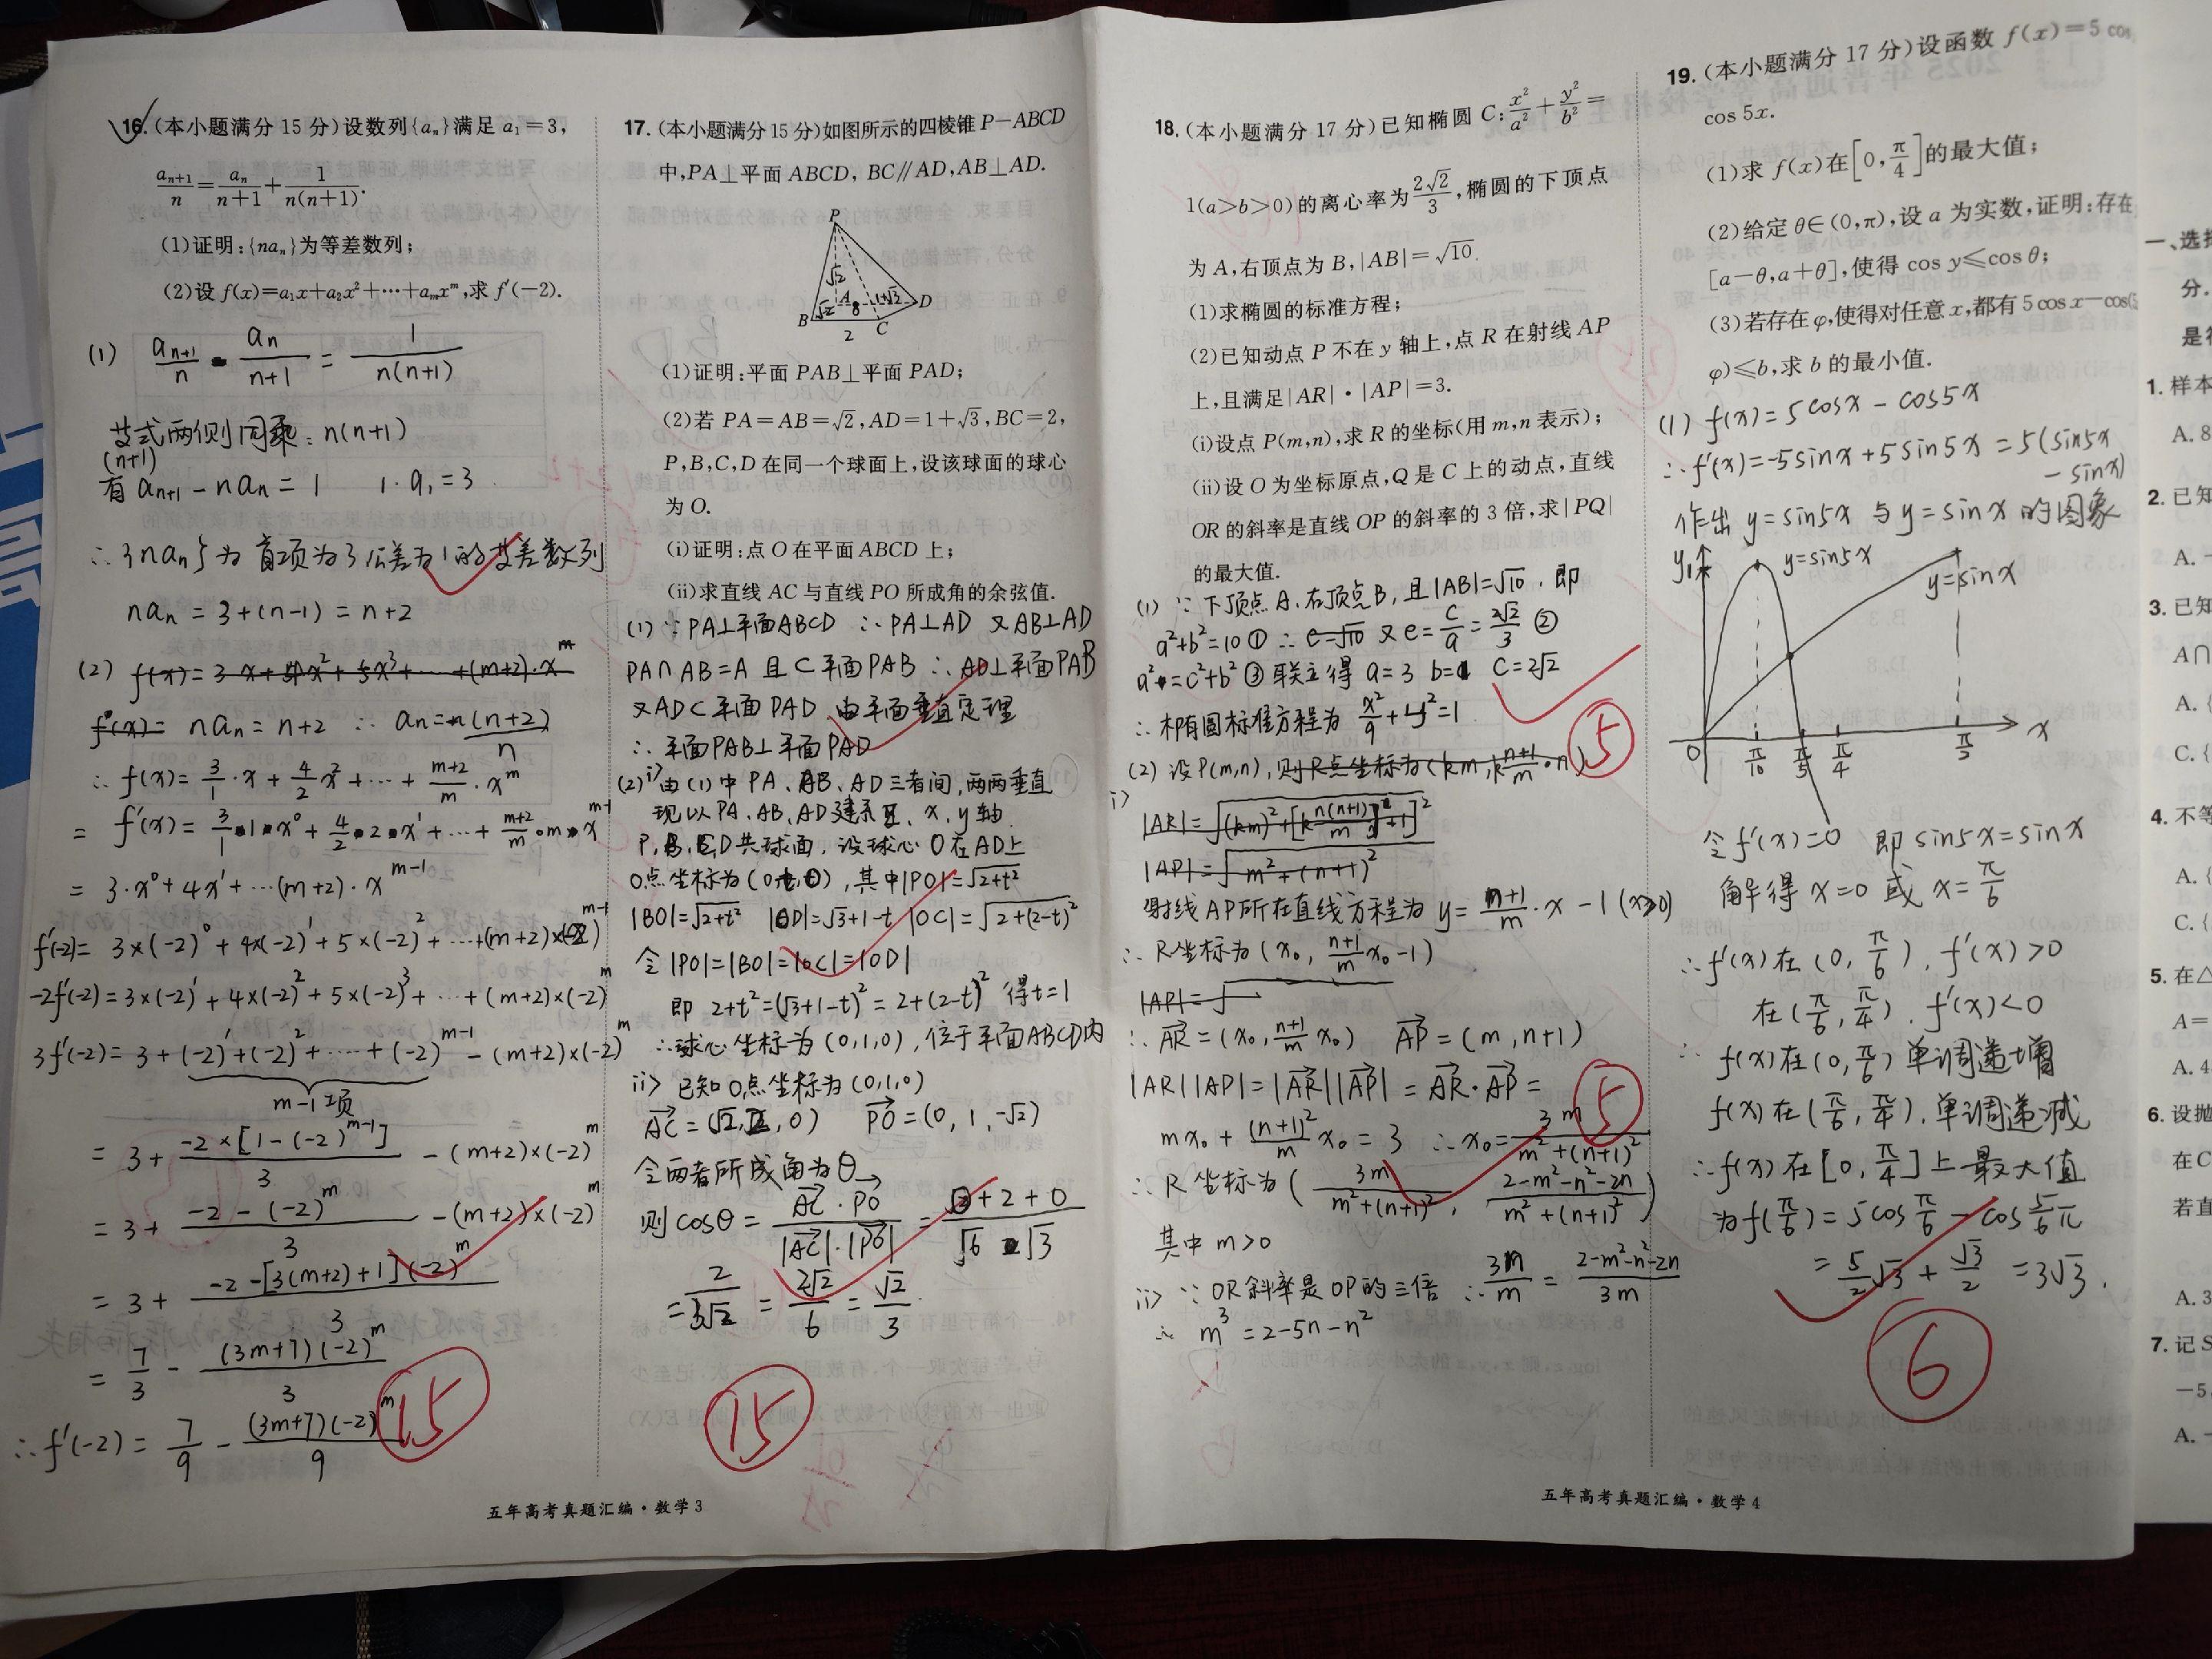 16.(本小题满分 15 分)设数列{aₙ}满足 a₁=3,
aₙ₊₁/n = aₙ/(n+1) + 1/(n(n+1)).
(1)证明:{naₙ}为等差数列;
(2)设 f(x)=a₁x+a₂x²+⋯+aₘxᵐ,求 f′(-2).
(1) aₙ₊₁/n - aₙ/(n+1) = 1/(n(n+1))
等式两侧同乘: n(n+1)
有 (n+1)aₙ₊₁ - naₙ = 1    1·a₁=3
∴{naₙ}为首项为3公差为1的等差数列
naₙ = 3+(n-1) = n+2
(2) f(x)= 3x+4x²+5x³+⋯+(m+2)·xᵐ
f(x)= naₙ = n+2 ∴ aₙ = (n+2)/n
∴ f(x)= 3/1·x + 4/2 x² +⋯+ (m+2)/m·xᵐ
= f′(x)= 3/1·1·x⁰ + 4/2·2·x¹ +⋯+ (m+2)/m·m·xᵐ⁻¹
= 3·x⁰+4x¹+⋯(m+2)·xᵐ⁻¹
f′(-2)= 3×(-2)⁰+4×(-2)¹+5×(-2)²+⋯+(m+2)×(-2)ᵐ⁻¹
-2f′(-2)=3×(-2)¹+4×(-2)²+5×(-2)³+⋯+(m+2)×(-2)ᵐ
3f′(-2)= 3+(-2)¹+(-2)²+⋯+(-2)ᵐ⁻¹-(m+2)×(-2)ᵐ
m-1项
= 3 + (-2×[1-(-2)ᵐ⁻¹])/3 - (m+2)×(-2)ᵐ
= 3 + (-2-(-2)ᵐ)/3 - (m+2)×(-2)ᵐ
= 3 + (-2-[3(m+2)+1](-2)ᵐ)/3
= 7/3 - (3m+7)(-2)ᵐ/3
∴f′(-2) = 7/9 - (3m+7)(-2)ᵐ/9
15
17.(本小题满分15分)如图所示的四棱锥P-ABCD
中,PA⊥平面 ABCD, BC∥AD,AB⊥AD.
P
√2
A
√2
D
B
C
2
(1)证明:平面 PAB⊥平面 PAD;
(2)若 PA=AB=√2,AD=1+√3,BC=2,
P,B,C,D 在同一个球面上,设该球面的球心
为 O.
(i)证明:点 O 在平面 ABCD 上;
(ii)求直线 AC 与直线 PO 所成角的余弦值.
(1)∵PA⊥平面ABCD ∴PA⊥AD 又AB⊥AD
PA∩AB=A 且⊂平面PAB ∴AD⊥平面PAB
又AD⊂平面PAD 由平面垂直定理
∴平面PAB⊥平面PAD
(2)i>由(1)中PA、AB、AD三者间,两两垂直
现以PA、AB、AD建系 z、x、y轴.
P,B,C,D共球面, 设球心O在AD上
O点坐标为(0,t,0),其中|PO|=√(2+t²)
|BO|=√(2+t²) |OD|=√3+1-t |OC|=√(2+(2-t)²)
令|PO|=|BO|=|OC|=|OD|
即 2+t²=(√3+1-t)²=2+(2-t)² 得t=1
∴球心坐标为(0,1,0),位于平面ABCD内
ii> 已知O点坐标为(0,1,0)
AC→=(√2,2,0) PO→=(0,1,-√2)
令两者所成角为θ
则cosθ= (AC→·PO→)/(|AC→|·|PO→|) = (0+2+0)/(√6·√3)
= 2/(3√2) = 2√2/6 = √2/3
15
五年高考真题汇编·数学3
18.(本小题满分 17 分)已知椭圆 C:x²/a²+y²/b²=
1(a>b>0)的离心率为2√2/3,椭圆的下顶点
为 A,右顶点为 B,|AB|=√10.
(1)求椭圆的标准方程;
(2)已知动点 P 不在 y 轴上,点 R 在射线 AP
上,且满足|AR|·|AP|=3.
(i)设点 P(m,n),求 R 的坐标(用 m,n 表示);
(ii)设 O 为坐标原点,Q 是 C 上的动点,直线
OR 的斜率是直线 OP 的斜率的 3 倍,求|PQ|
的最大值.
(1)∵下顶点A、右顶点B,且|AB|=√10,即
a²+b²=10① ∴c=√10 又e=c/a=2√2/3 ②
a²=c²+b²③联立得 a=3 b=1 c=2√2
∴椭圆标准方程为 x²/9+y²=1
5
(2) 设P(m,n),则R点坐标为(km, k(n+1)/m·n)
i>
|AR|=√((km)²+[k n(n+1)/m+1]²)
|AP|=√(m²+(n+1)²)
射线AP所在直线方程为 y=(n+1)/m·x-1(x≥0)
∴R坐标为(x₀, (n+1)/m x₀-1)
|AP|=√
∴AR→=(x₀,(n+1)/m x₀) AP→=(m,n+1)
|AR||AP|=|AR→||AP→|=AR→·AP→=
mx₀+(n+1)²/m x₀=3 ∴x₀=3m/(m²+(n+1)²)
5
∴R坐标为(3m/(m²+(n+1)²), (2-m²-n²-2n)/(m²+(n+1)²))
其中m>0
ii> ∵OR斜率是OP的三倍 ∴3n/m=(2-m²-n²-2n)/3m
∴ m³=2-5n-n²
19.(本小题满分 17 分)设函数 f(x)=5 cos
cos 5x.
(1)求 f(x)在[0,π/4]的最大值;
(2)给定 θ∈(0,π),设 a 为实数,证明:存在
[a-θ,a+θ],使得 cos y≤cos θ;
(3)若存在 φ,使得对任意 x,都有 5 cos x-cos(5
φ)≤b,求 b 的最小值.
(1) f(x)=5cosx-cos5x
∴f′(x)=-5sinx+5sin5x=5(sin5x
-sinx)
作出y=sin5x与y=sinx的图象
y
1
y=sin5x
y=sinx
0 π/10 π/5 π/4 x
令f′(x)=0 即sin5x=sinx
解得x=0或x=π/6
∴f′(x)在(0,π/6),f′(x)>0
在(π/6,π/4),f′(x)<0
∴f(x)在(0,π/6)单调递增
f(x)在(π/6,π/4),单调递减
∴f(x)在[0,π/4]上最大值
为f(π/6)=5cosπ/6-cos5/6π
=5/2√3+√3/2=3√3.
6
五年高考真题汇编·数学4
一、选择
分.
是符
1. 样本
A. 8
2. 已知
A. -
3. 已知
A∩
A. {
C. {
4. 不等
A. {
C. {
5. 在△
A=
A. 4
6. 设抛
在C
若直
A. 3
7. 记S
-5,
A. -